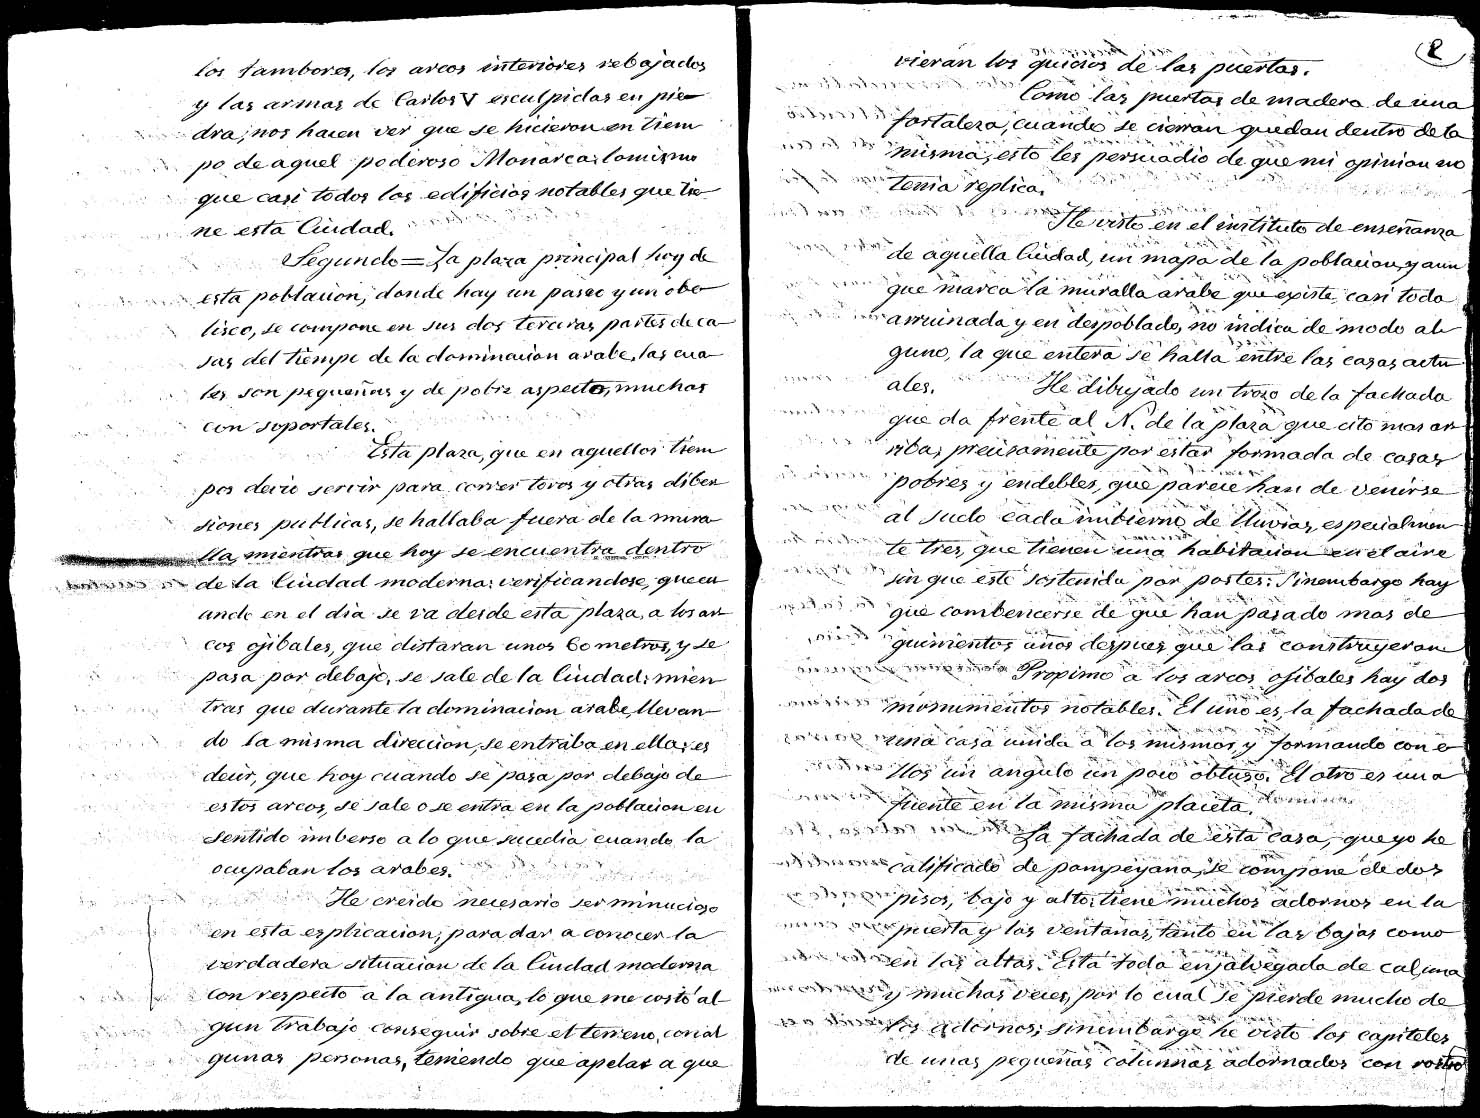 los tambores, los arcos interiores rebajados
y las armas de Carlos V esculpidas en pie-
dra; nos hacen ver que se hicieron en tiem
po de aquel poderoso Monarca: lo mismo
que casi todos los edificios notables que tie-
ne esta Ciudad.
Segundo = La plaza principal hoy de
esta poblacion, donde hay un paseo y un obe-
lisco, se compone en sus dos terceras partes de ca-
sas del tiempo de la dominacion arabe, las cua-
les son pequeñas y de pobre aspecto, muchas
con soportales.
Esta plaza, que en aquellos tiem
pos devio servir para correr toros y otras diber
siones publicas, se hallaba fuera de la mura
lla, mientras que hoy se encuentra dentro
de la Ciudad moderna: verificandose, que cu
ando en el dia se va desde esta plaza, a los ar-
cos ojibales, que distaran unos 60 metros, y se
pasa por debajo, se sale de la Ciudad: mien
tras que durante la dominacion arabe, llevan-
do la misma direccion, se entraba en ella; es
decir, que hoy cuando se pasa por debajo de
estos arcos, se sale o se entra en la poblacion en
sentido imberso a lo que sucedia cuando la
ocupaban los arabes.
He creido necesario ser minucioso
en esta esplicacion, para dar a conocer la
verdadera situacion de la Ciudad moderna
con respecto a la antigua, lo que me costó al-
gun trabajo conseguir sobre el terreno, con al
gunas personas, teniendo que apelar a que
2
vieran los quicios de las puertas.
Como las puertas de madera de una
fortaleza, cuando se cierran quedan dentro de la
misma, esto les persuadio de que mi opinion no
tenia replica.
He visto en el instituto de enseñanza
de aquella Ciudad, un mapa de la poblacion, y aun
que marca la muralla arabe que existe casi toda
arruinada y en despoblado, no indica de modo al-
guno, la que entera se halla entre las casas actu
ales. He dibujado un trozo de la fachada
que da frente al N. de la plaza que cito mas ar-
riba; precisamente por estar formada de casas
pobres y endebles, que parece han de venirse
al suelo cada imbierno de lluvias, especialmen
te tres, que tienen una habitacion en el aire
sin que esté sostenida por postes: sinembargo hay
que combencerse de que han pasado mas de
quinientos años despues que las construyeron
Propimo a los arcos ojibales hay dos
monumentos notables. El uno es, la fachada de
una casa unida a los mismos, y formando con e-
llos un angulo un poco obtuso. El otro es una
fuente en la misma placeta.
La fachada de esta casa, que yo he
calificado de pompeyana, se compone de dos
pisos, bajo y alto: tiene muchos adornos en la
puerta y las ventanas, tanto en las bajas como
en las altas. Esta toda enjalvegada de cal, una
y muchas veces, por lo cual se pierde mucho de
los adornos; sinembargo he visto los capiteles
de unas pequeñas columnas adornados con rostro